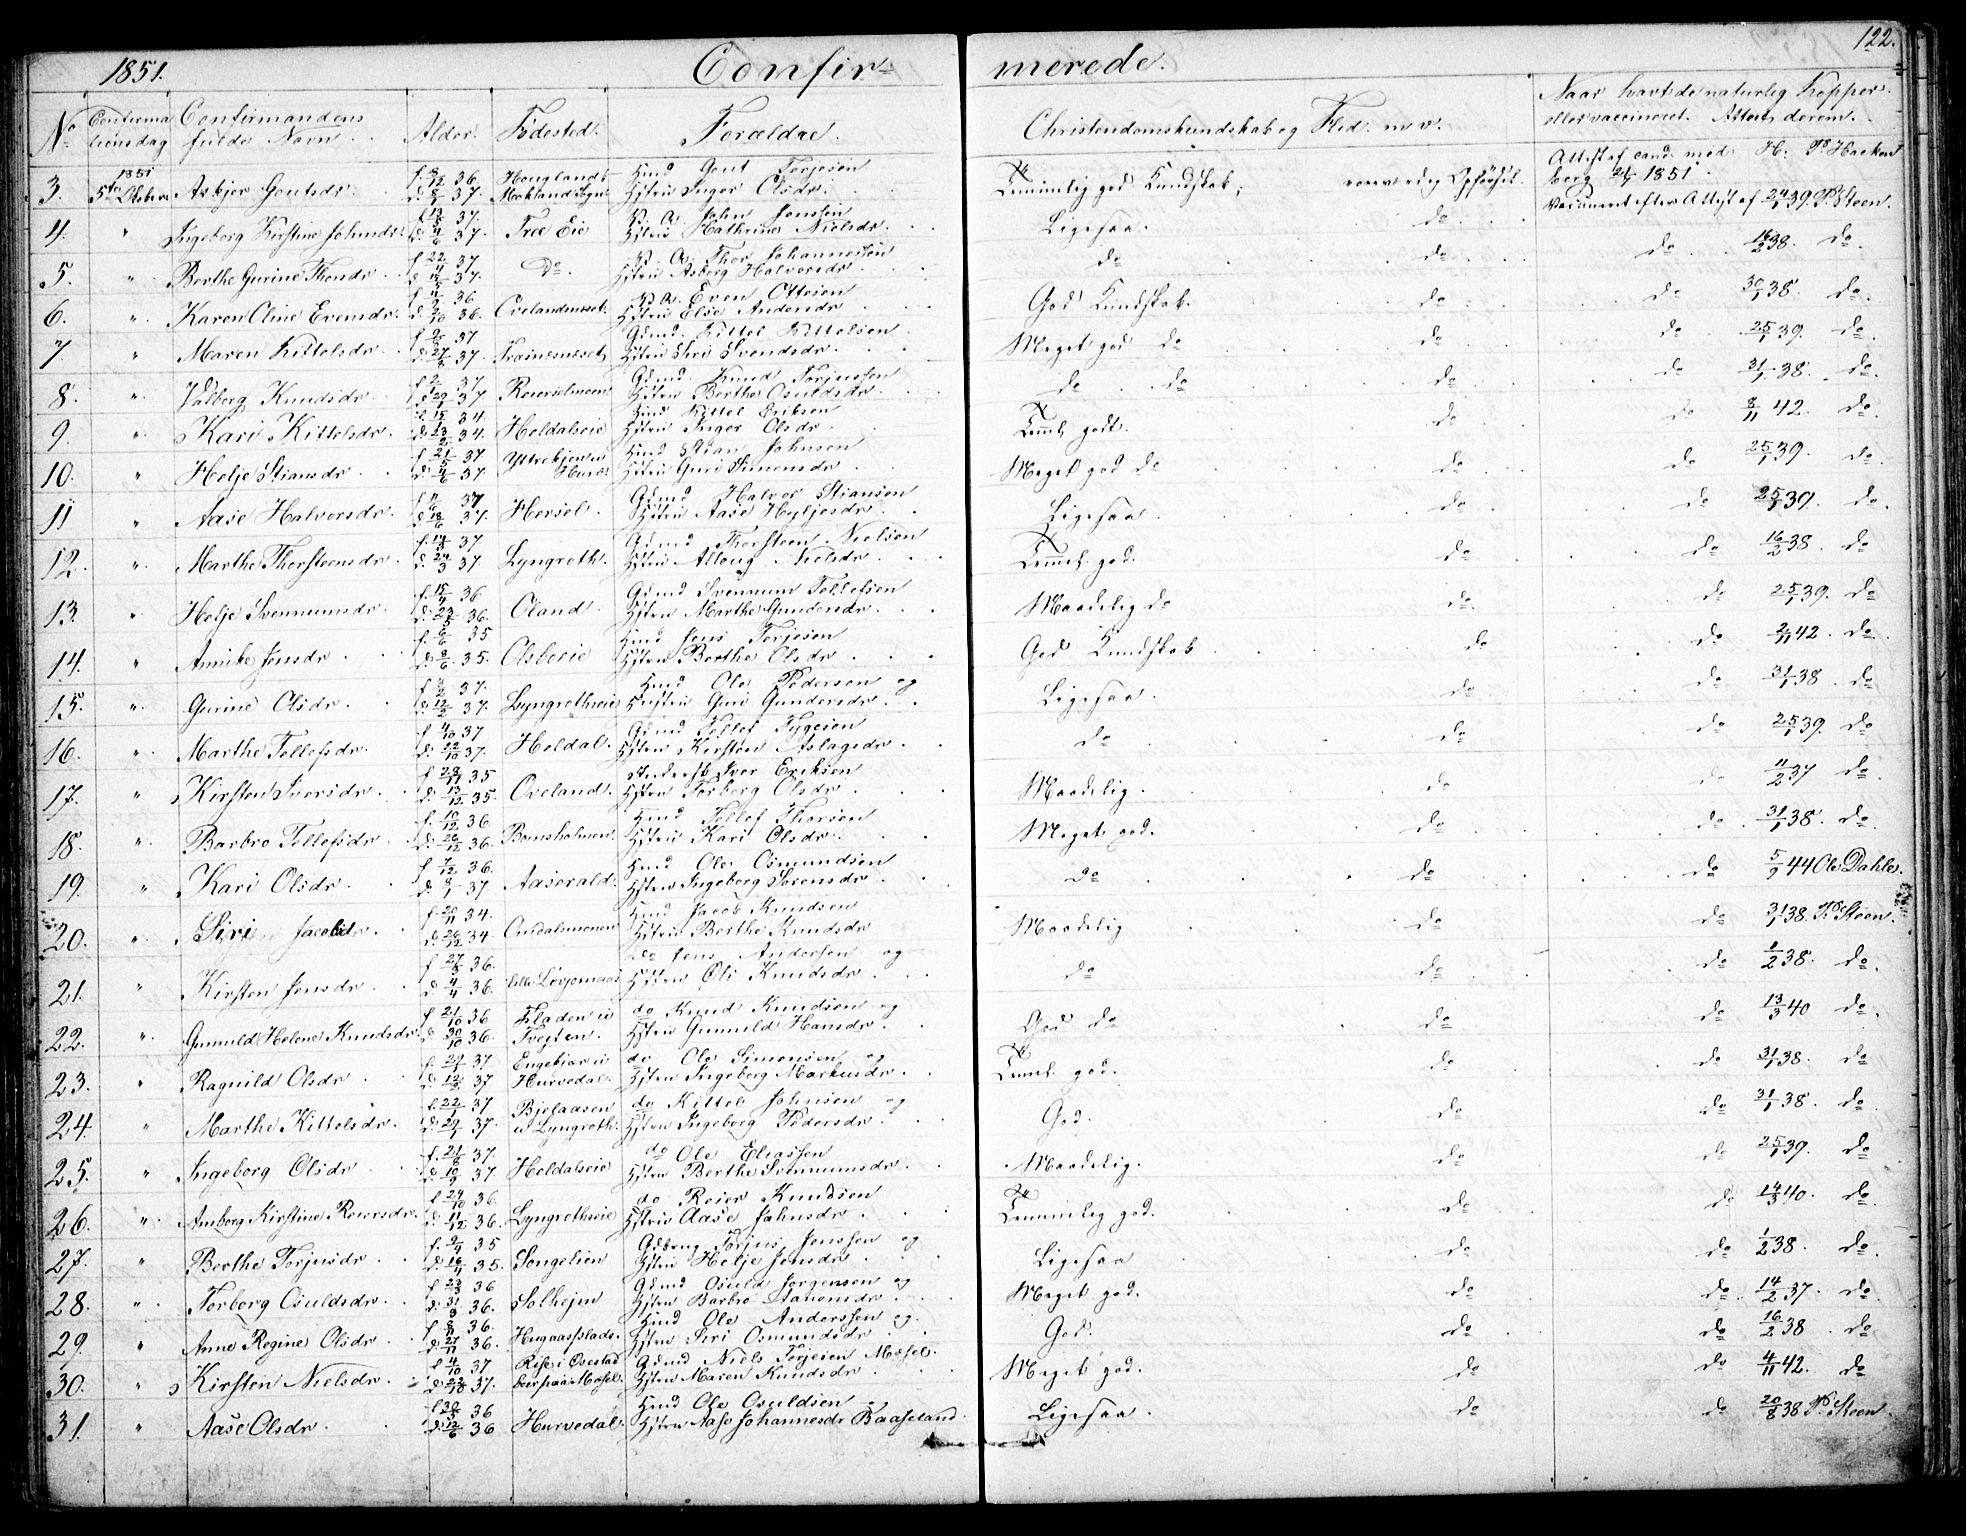 1851. Confir- merede. 122.
No Confirmationsdag Confirmandens fulde Navn Alder. Fødested. Forældre. Christendomskundskab og Flid. m. v. Naar havt de naturlig Kopper eller vaccineret. Attest derom.
3. 1851 5te Octbr Askjer Goutsdr. 36. 37. Houglands Moklands Kind Gout Terjesen Hstru Inger Olsdr. Temmelig god Kundskab, Attest af cand. med. H: berg 1851
4. " Ingeborg Kirstine Johnsdr. 37. 37. Træ Eie John Jensen Hstru Kathrine Nielsdr. Ligesaa. do Vaccineret efter Attest af 24/1 39. P. Steen.
5. " Berthe Gurine Thordr. f 22/4 37 37. Do. Thor Johannessen Hstru Asborg Halvorsdr. do do do 16/2 38. do
6. " Karen Oline Evensdr. 36 36. Ovelandsneset. Even Ottesen Hstru Else Andersdr. God Kundskab. do do 30/1 38. do
7 " Maren Kittelsdr. 37 37. Gdmd. Kittel Kittelsen Hstru Siri Svendsdr. Meget god do do do 25/1 39. do
8. " Valborg Knudsdr. 37 37 Gdmd. Knud Terjussen Hstru Berthe Osuldsdr. do do do do 31/1 38. do
9. " Kari Kittelsdr. 34. 34. Holdalseie Kittel Eriksen Hstru Inger Olsdr. Teml. godt. do do 8/11 42. do
10. " Helje Stiansdr. 37 37 Yttrekjern u Hurv. Stian Johnsen Hstru Guri Simonsdr. Meget god do do do 25/1 39. do
11 " Aase Halvorsdr. 37 37. Hersel. Gdmd Halvor Stiansen Hstru Aase Heljesdr. Ligesaa. do do 25/1 39. do
12. " Marthe Thorsteensdr. 37 37. Lyngroth. Gdmd Thorsteen Nielsen Hstru Alloug Nielsdr. Teml. god. do do 16/2 38. do
13. " Helje Svennumsdr. 36 36. Oland. Gdmd Svennum Tellefsen Hstru Marthe Gundersdr. Maadelig do do do 25/1 39. do
14. " Annike Jensdr. 35 35. Olsboeie Jens Terjesen Hstru Berthe Olsdr. God Kundskab do do 2/11 42. do
15. " Gurine Olsdr. 37. 37. Lyngrotheie Ole Pedersen og Hustru Guri Gundersdr. Ligesaa. do do 31/1 38. do
16. " Marthe Tellefsdr. f 4/10 37 d. 22/10 37. Holdal. Gdmd Tellef Tygesen Hstru Kirsten Aslagsdr. do do do 25/1 39. do
17. " Kirsten Iversdr. 35 d. 13/12 35. Oveland. Iver Eriksen Hstru Torborg Olsdr. Maadelig. do do 11/2 37 do
18. " Barbro Tellefsdr. f. 10/12 36 d. 26/12 36. Bomsholmen. Tellef Thorsen Hstru Kari Olsdr. Meget god. do do 31/1 38. do
19. " Kari Olsdr. f 7/12 36. 37 Aaserald. Ole Osmundsen Hstru Ingeborg Sørensdr. do do do 5/9 44 Ole Dahle.
20. " Siri Jacobdr. f. 20/11 34. d. 26/12 34. Jacob Knudsen Hstru Berthe Knudsdr Maadelig do do 31/1 38. P. Steen.
21. " Kirsten Jensdr. 36. d. 4/4 36. Lille do Jens Andersen og Hstru Oli Knudsdr. do do do 1/2 38. do
22. " Gunnuld Helene Knudsdr. f 21/10 36 d. 30/10 36. Fladen u Tvejten. do Knud Knudsen og Hstru Gunnild Hansdr. God do do do 13/3 40 do
23. " Ragnild Olsdr. 37 37 Engekjær u Hurvedal. do Ole Simonsen og Hstru Ingeborg Markusdr. Teml. god. do do 31/1 38. do
24. " Marthe Kittelsdr. f. 22/1 37 37. Bjelaasen u Lyngroth. do Kittel Johnsen og Hstru Ingeborg Pedersdr. God. do do 31/1 38. do
25. " Ingeborg Olsdr. f. 21/8 37. d. 10/9 37 Holdalseie do Ole Eliassen Hstru Berthe Svennumsdr. Maadelig. do do 25/1 39. do
26. " Amborg Kirstine Reiersdr. 36. d. 11/12 36. Lyngrotheie do Reier Knudsen Hstru Aase Jahnsdr. Temmelig god. do do 14/3 40. do
27. " Berthe Terjusdr. 35 35. Songelien Terjus Jenssen og Hstru Helje Jensdr. Ligesaa do do 1/2 38. do
28. " Torborg Osuldsdr. f. 23/3 36 d. 31/3 36. Solhejm Gdmd Osuld Jørgensen og Hstru Barbro Aanonsdr. Meget god. do do 14/2 37. do
29. " Anne Regine Olsdr. 36. d. 27/11 36. Hugaasplads. Ole Anderssen og Hstru Siri Osmundsdr. God. do do 16/2 38. do
30. " Kirsten Nielsdr. f 4/10 37 37. Riseri Ousstad boer paa Mosel. Gdmd Niels Terjesen Mosel. Hstru Maren Knudsdr. Meget god. do do 4/11 42. do
31. " Aase Olsdr. 36 36 Hurvedal. Ole Osuldsen og Hstru Aase Johannesdr Baaseland. Ligesaa. do do 20/8 38 P. Steen.